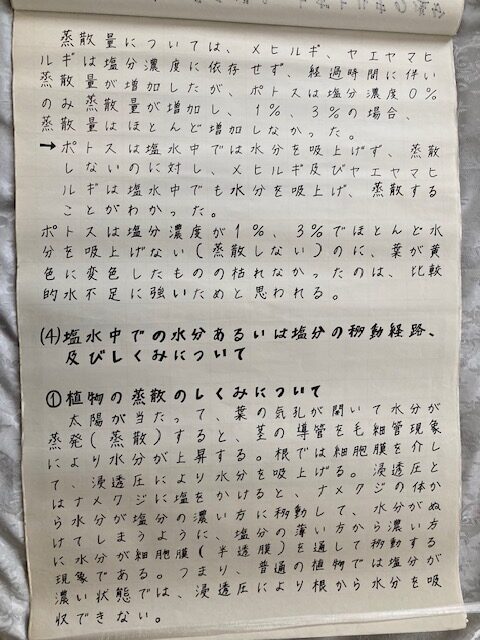 蒸散量については、メヒルギ、ヤエヤマヒ
ルギは塩分濃度に依存せず、経過時間に伴い
蒸散量が増加したが、ポトスは塩分濃度0%
のみ蒸散量が増加し、1%、3%の場合、
蒸散量はほとんど増加しなかった。
→ポトスは塩水中では水分を吸上げず、蒸散
しないのに対し、メヒルギ及びヤエヤマヒ
ルギは塩水中でも水分を吸上げ、蒸散する
ことがわかった。
ポトスは塩分濃度が1%、3%でほとんど水
分を吸上げない(蒸散しない)のに、葉が黄
色に変色したものの枯れなかったのは、比較
的水不足に強いためと思われる。
(4)塩水中での水分あるいは塩分の移動経路、
及びしくみについて
①植物の蒸散のしくみについて
太陽が当たって、葉の気孔が開いて水分が
蒸発(蒸散)すると、茎の導管を毛細管現象
により水分が上昇する。根では細胞膜を介し
て、浸透圧により水分を吸上げる。浸透圧と
はナメクジに塩をかけると、ナメクジの体か
ら水分が塩分の濃い方に移動して、水分がぬ
けてしまうように、塩分の薄い方から濃い方
に水分が細胞膜(半透膜)を通して移動する
現象である。つまり、普通の植物では塩分が
濃い状態では、浸透圧により根から水分を吸
収できない。